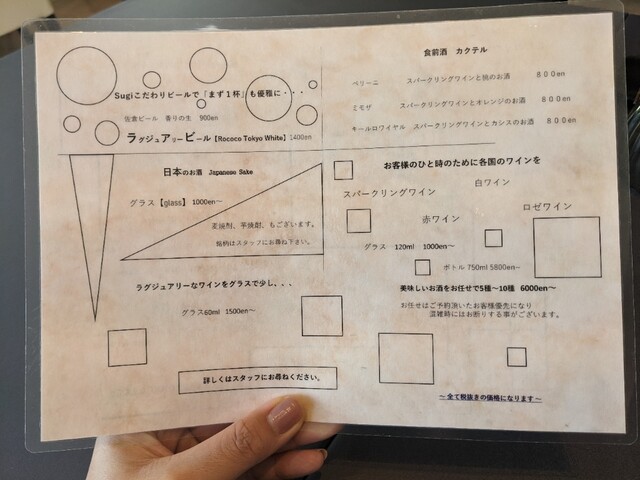 Sugiこだわりビールで「まず1杯」も優雅に・・・
佐倉ビール 香りの生 900en
ラグジュアリービール【Rococo Tokyo White】1400en
食前酒 カクテル
ベリーニ スパークリングワインと桃のお酒 800en
ミモザ スパークリングワインとオレンジのお酒 800en
キールロワイヤル スパークリングワインとカシスのお酒 800en
日本のお酒 Japanese Sake
グラス【glass】1000en~
麦焼酎、芋焼酎、もございます。
銘柄はスタッフにお尋ね下さい。
ラグジュアリーなワインをグラスで少し、、、
グラス60ml 1500en~
詳しくはスタッフにお尋ねください。
お客様のひと時のために各国のワインを
白ワイン
スパークリングワイン
ロゼワイン
赤ワイン
グラス 120ml 1000en~
ボトル 750ml 5800en~
美味しいお酒をお任せで5種~10種 6000en~
お任せはご予約頂いたお客様優先になり
混雑時にはお断りする事がございます。
~全て税抜きの価格になります~